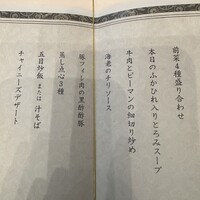 前菜4種盛り合わせ
本日のふかひれ入りとろみスープ
牛肉とピーマンの細切り炒め
海老のチリソース
豚フィレ肉の黒酢酢豚
蒸し点心3種
五目炒飯 または 汁そば
チャイニーズデザート